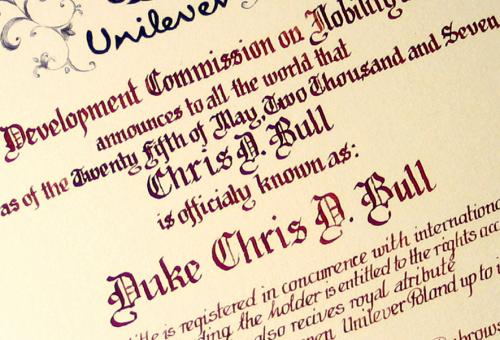 Unilever
Development Commission on Nobility
announces to all the world that
as of the Twenty Fifth of May, Two Thousand and Seven
Chris D. Bull
is officialy known as:
Duke Chris D. Bull
title is registered in concurrence with international
the holder is entitled to the rights
also recives royal atribute
Unilever Poland up to